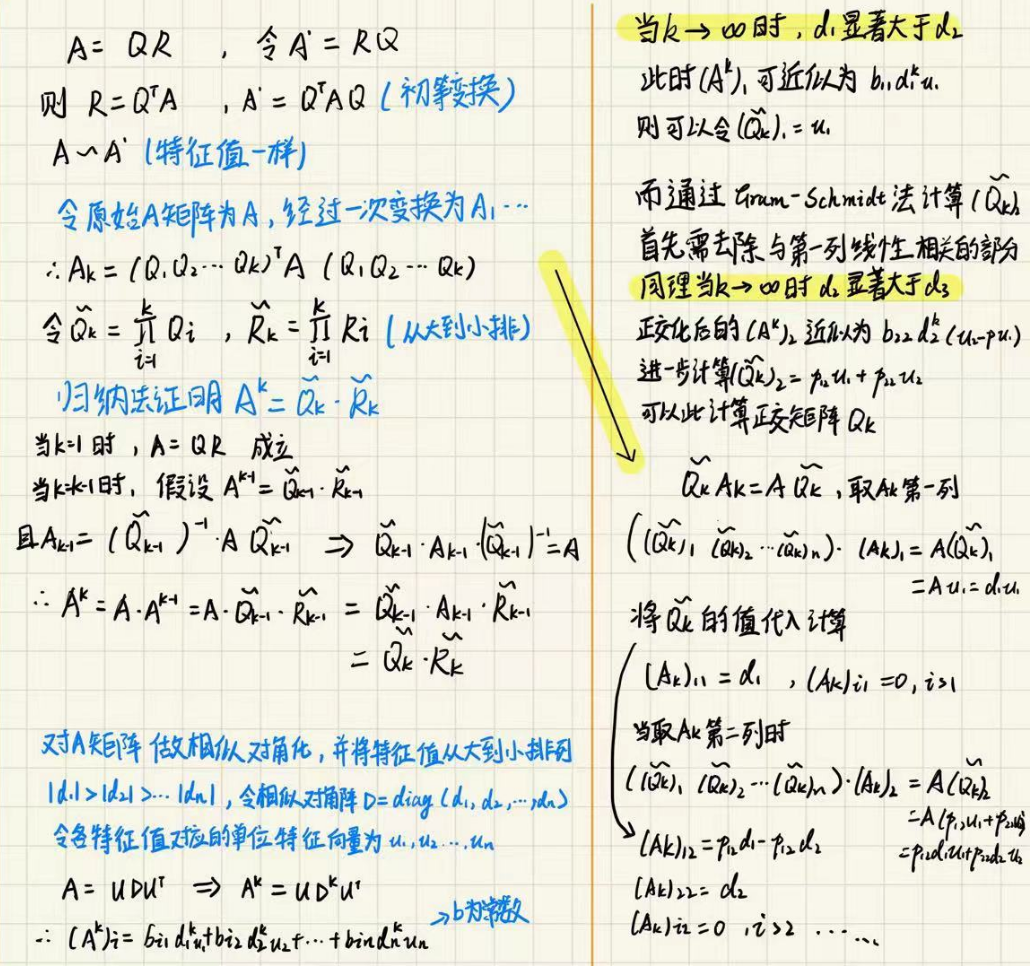 A = QR , 令 A' = RQ
则 R = QᵀA , A' = QᵀAQ (初等变换)
A ∽ A' (特征值一样)
令原始A矩阵为A, 经过一次变换为A₁ …
∴ Aₖ = (Q₁Q₂ … Qₖ)ᵀ A (Q₁Q₂ … Qₖ)
令 Q̃ₖ = ∏ᵢ₌₁ᵏ Qᵢ , R̃ₖ = ∏ᵢ₌₁ᵏ Rᵢ (从大到小排)
归纳法证明 Aᵏ = Q̃ₖ · R̃ₖ
当k=1时, A = QR 成立
当k=k-1时, 假设 Aᵏ⁻¹ = Q̃ₖ₋₁ · R̃ₖ₋₁
且 Aₖ₋₁ = (Q̃ₖ₋₁)⁻¹ · A Q̃ₖ₋₁ ⇒ Q̃ₖ₋₁ · Aₖ₋₁ · (Q̃ₖ₋₁)⁻¹ = A
∴ Aᵏ = A · Aᵏ⁻¹ = A · Q̃ₖ₋₁ · R̃ₖ₋₁ = Q̃ₖ₋₁ · Aₖ₋₁ · R̃ₖ₋₁
= Q̃ₖ · R̃ₖ
对A矩阵做相似对角化, 并将特征值从大到小排列
|d₁| > |d₂| > … |dₙ| , 令相似对角阵 D = diag (d₁, d₂, …, dₙ)
令各特征值对应的单位特征向量为 u₁, u₂ …, uₙ
A = UDUᵀ ⇒ Aᵏ = UDᵏUᵀ
→ b为常数
∴ (Aᵏ)ᵢ = bᵢ₁d₁ᵏu₁ + bᵢ₂d₂ᵏu₂ + … + bᵢₙdₙᵏuₙ
当k → ∞时, d₁显著大于d₂
此时(Aᵏ)₁可近似为 b₁₁d₁ᵏu₁
则可以令(Q̃ₖ)₁ = u₁
而通过Gram-Schmidt法计算(Q̃ₖ)₂
首先需去除与第一列线性相关的部分
同理当k → ∞时 d₂显著大于d₃
正交化后的(Aᵏ)₂近似为 b₂₂d₂ᵏ(u₂-pu₁)
进一步计算(Q̃ₖ)₂ = p₁₂u₁ + p₂₂u₂
可以此计算正交矩阵Qₖ
Q̃ₖAₖ = AQ̃ₖ , 取Aₖ第一列
((Q̃ₖ)₁ (Q̃ₖ)₂ … (Q̃ₖ)ₙ) · (Aₖ)₁ = A(Q̃ₖ)₁
= Au₁ = d₁u₁
将Q̃ₖ的值代入计算
(Aₖ)₁₁ = d₁ , (Aₖ)ᵢ₁ = 0, i>1
当取Aₖ第二列时
((Q̃ₖ)₁ (Q̃ₖ)₂ … (Q̃ₖ)ₙ) · (Aₖ)₂ = A(Q̃ₖ)₂
= A(p₁₂u₁ + p₂₂u₂)
= p₁₂d₁u₁ + p₂₂d₂u₂
(Aₖ)₁₂ = p₁₂d₁ - p₁₂d₂
(Aₖ)₂₂ = d₂
(Aₖ)ᵢ₂ = 0 , i>2 ……